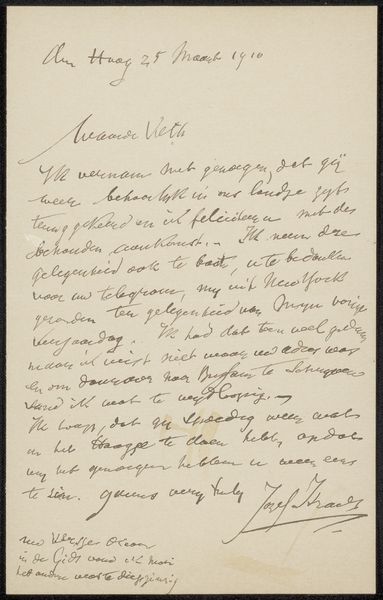 den Haag 25 Maart 1910
Waarde Veth
Ik vernam met genoegen, dat gij
weer behouden in ons landje zijt
teruggekeerd en ik feliciteer u met des
behouden aankomst. - Ik neem deze
gelegenheid ook te baat, u te bedanken
voor uw telegram, mij uit New York
gezonden ter gelegenheid van mijn vorige
verjaardag. Ik had dat toen wel gedaan
maar ik wist niet waar uw adres was
en om daarover naar te schrijven
vond ik wat te
Ik hoop, dat gij spoedig weer wat
in het Haagje te doen hebt, opdat
wij het genoegen hebben u weer eens
te zien. yours very truly
Jozef Israels
uw
in de Gids vond ik mooi
het andere wat te diepzinnig